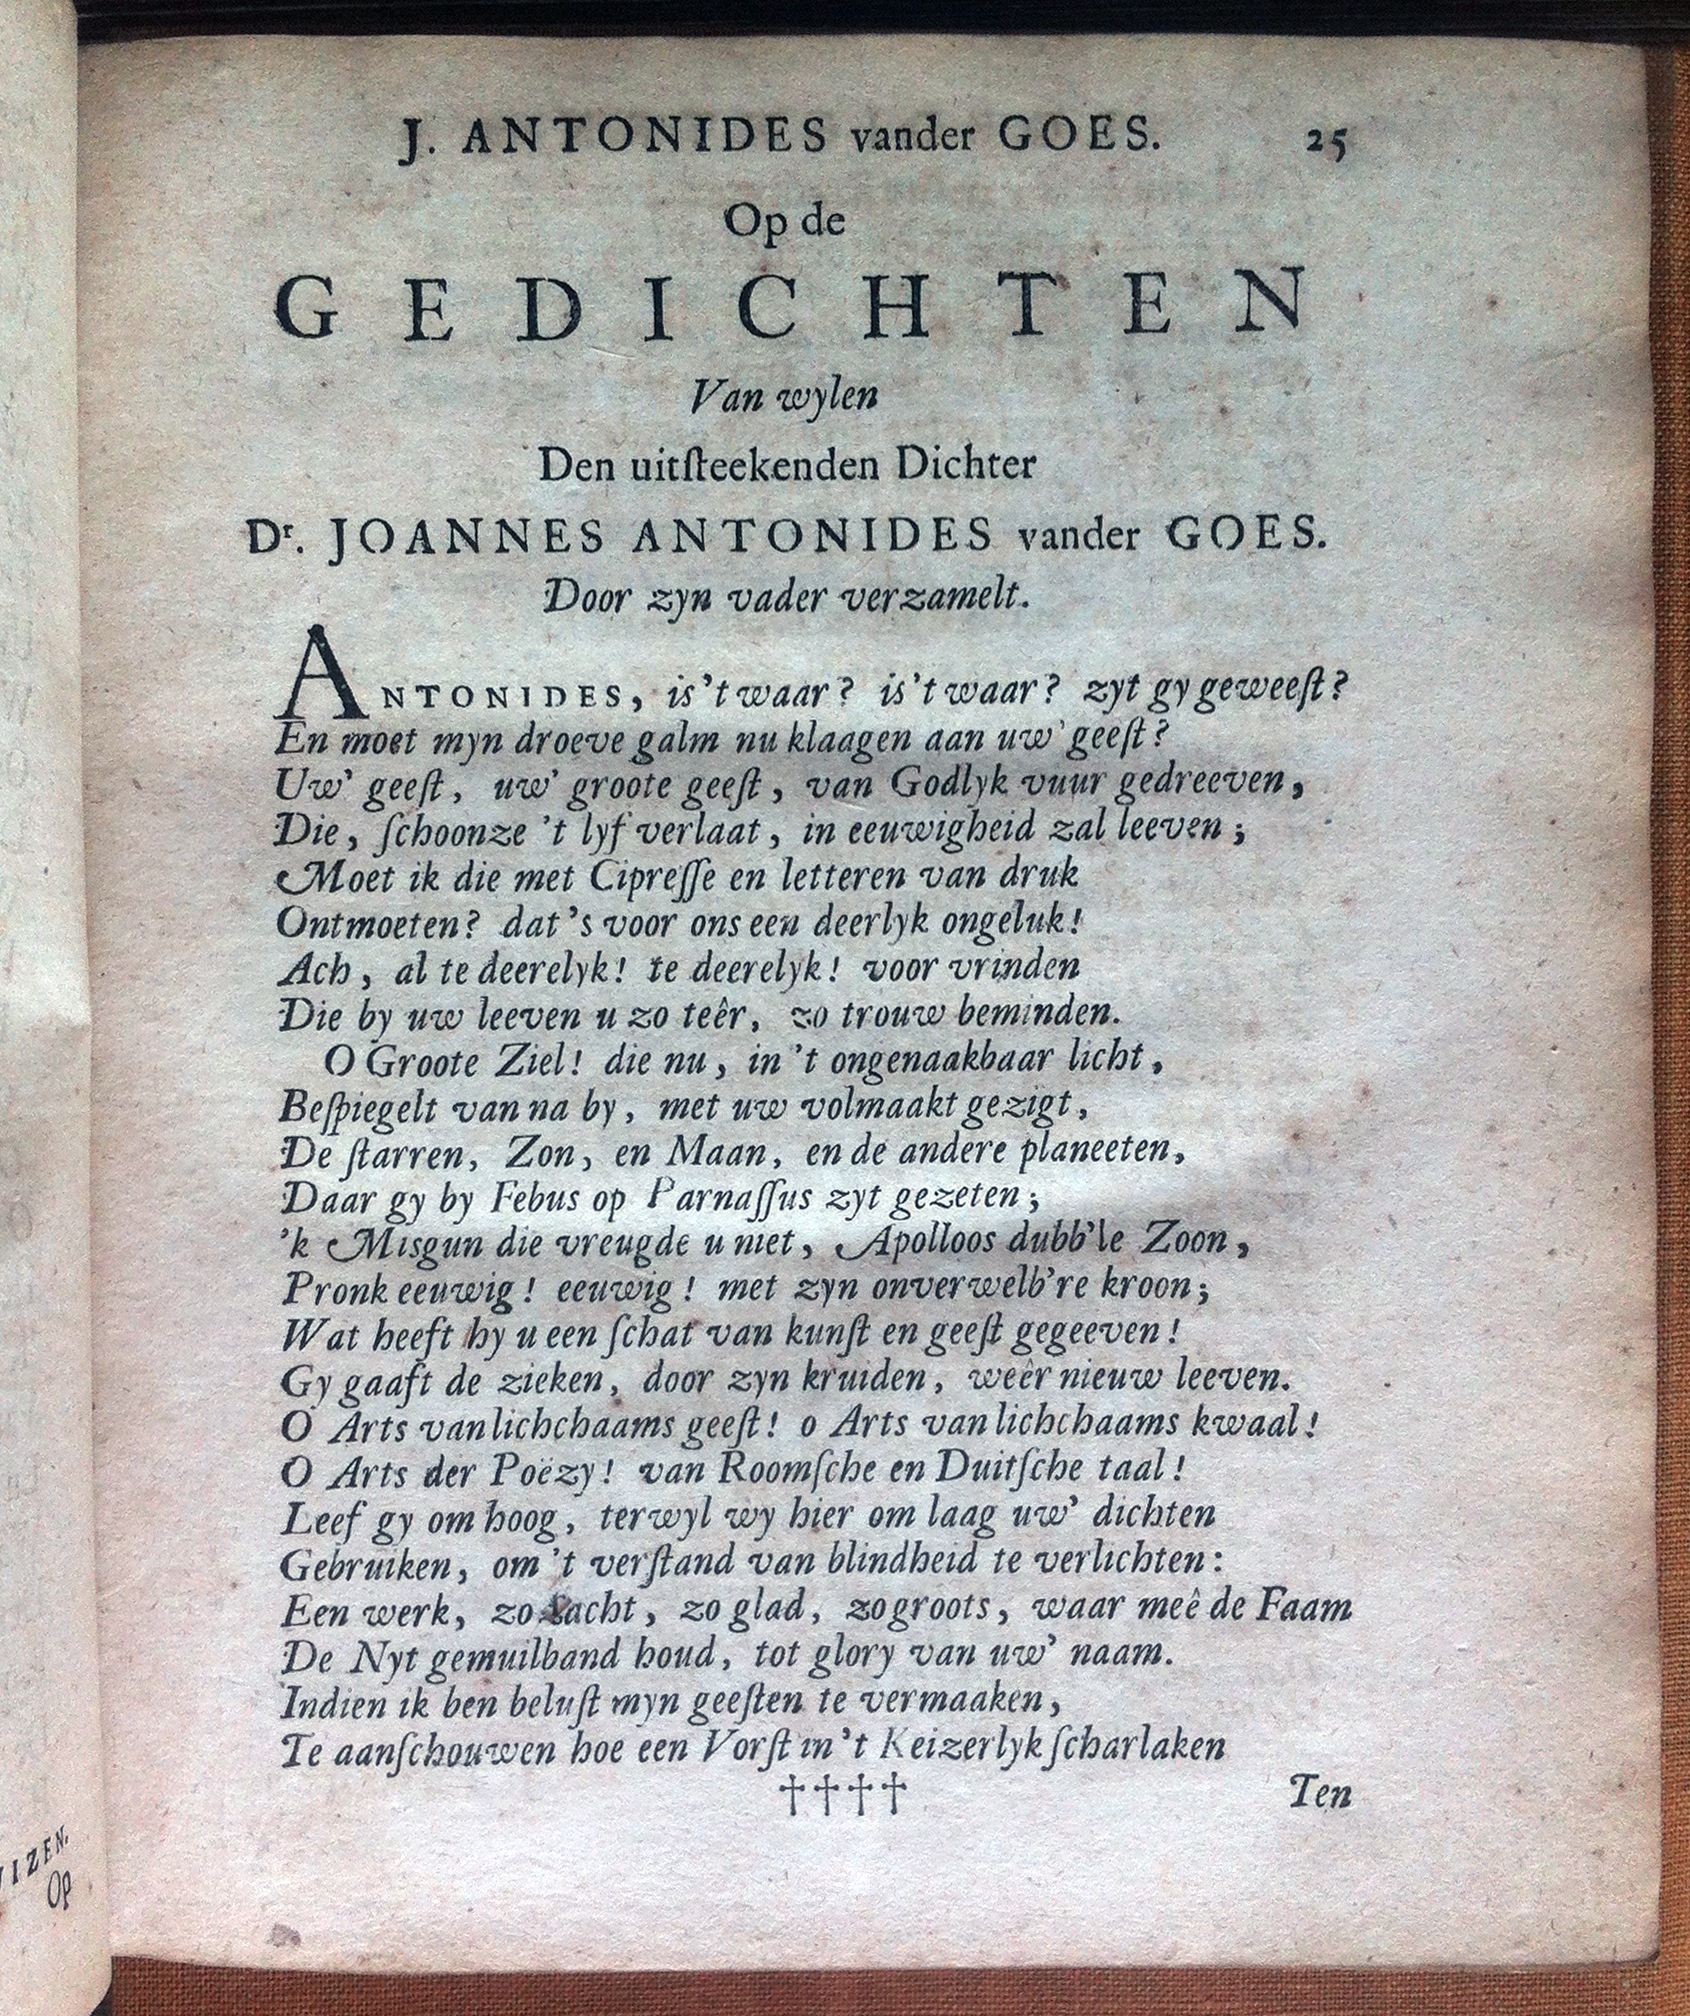 J. ANTONIDES vander GOES. 25
Op de
GEDICHTEN
Van wylen
Den uitſteekenden Dichter
Dr. JOANNES ANTONIDES vander GOES.
Door zyn vader verzamelt.
ANTONIDES, is't waar? is't waar? zyt gy geweeſt?
En moet myn droeve galm nu klaagen aan uw' geeſt?
Uw' geeſt, uw' groote geeſt, van Godlyk vuur gedreeven,
Die, ſchoonze 't lyf verlaat, in eeuwigheid zal leeven;
Moet ik die met Cipreſſe en letteren van druk
Ontmoeten? dat's voor ons een deerlyk ongeluk!
Ach, al te deerelyk! te deerelyk! voor vrinden
Die by uw leeven u zo teêr, zo trouw beminden.
O Groote Ziel! die nu, in 't ongenaakbaar licht,
Beſpiegelt van na by, met uw volmaakt gezigt,
De ſtarren, Zon, en Maan, en de andere planeeten,
Daar gy by Febus op Parnaſſus zyt gezeten;
'k Misgun die vreugde u niet, Apolloos dubb'le Zoon,
Pronk eeuwig! eeuwig! met zyn onverwelb're kroon;
Wat heeft hy u een ſchat van kunſt en geeſt gegeeven!
Gy gaaft de zieken, door zyn kruiden, weêr nieuw leeven.
O Arts van lichchaams geeſt! o Arts van lichchaams kwaal!
O Arts der Poëzy! van Roomſche en Duitſche taal!
Leef gy om hoog, terwyl wy hier om laag uw' dichten
Gebruiken, om 't verſtand van blindheid te verlichten:
Een werk, zo zacht, zo glad, zo groots, waar meê de Faam
De Nyt gemuilband houd, tot glory van uw' naam.
Indien ik ben beluſt myn geeſten te vermaaken,
Te aanſchouwen hoe een Vorſt in't Keizerlyk ſcharlaken
††††
Ten
IZEN.
Op